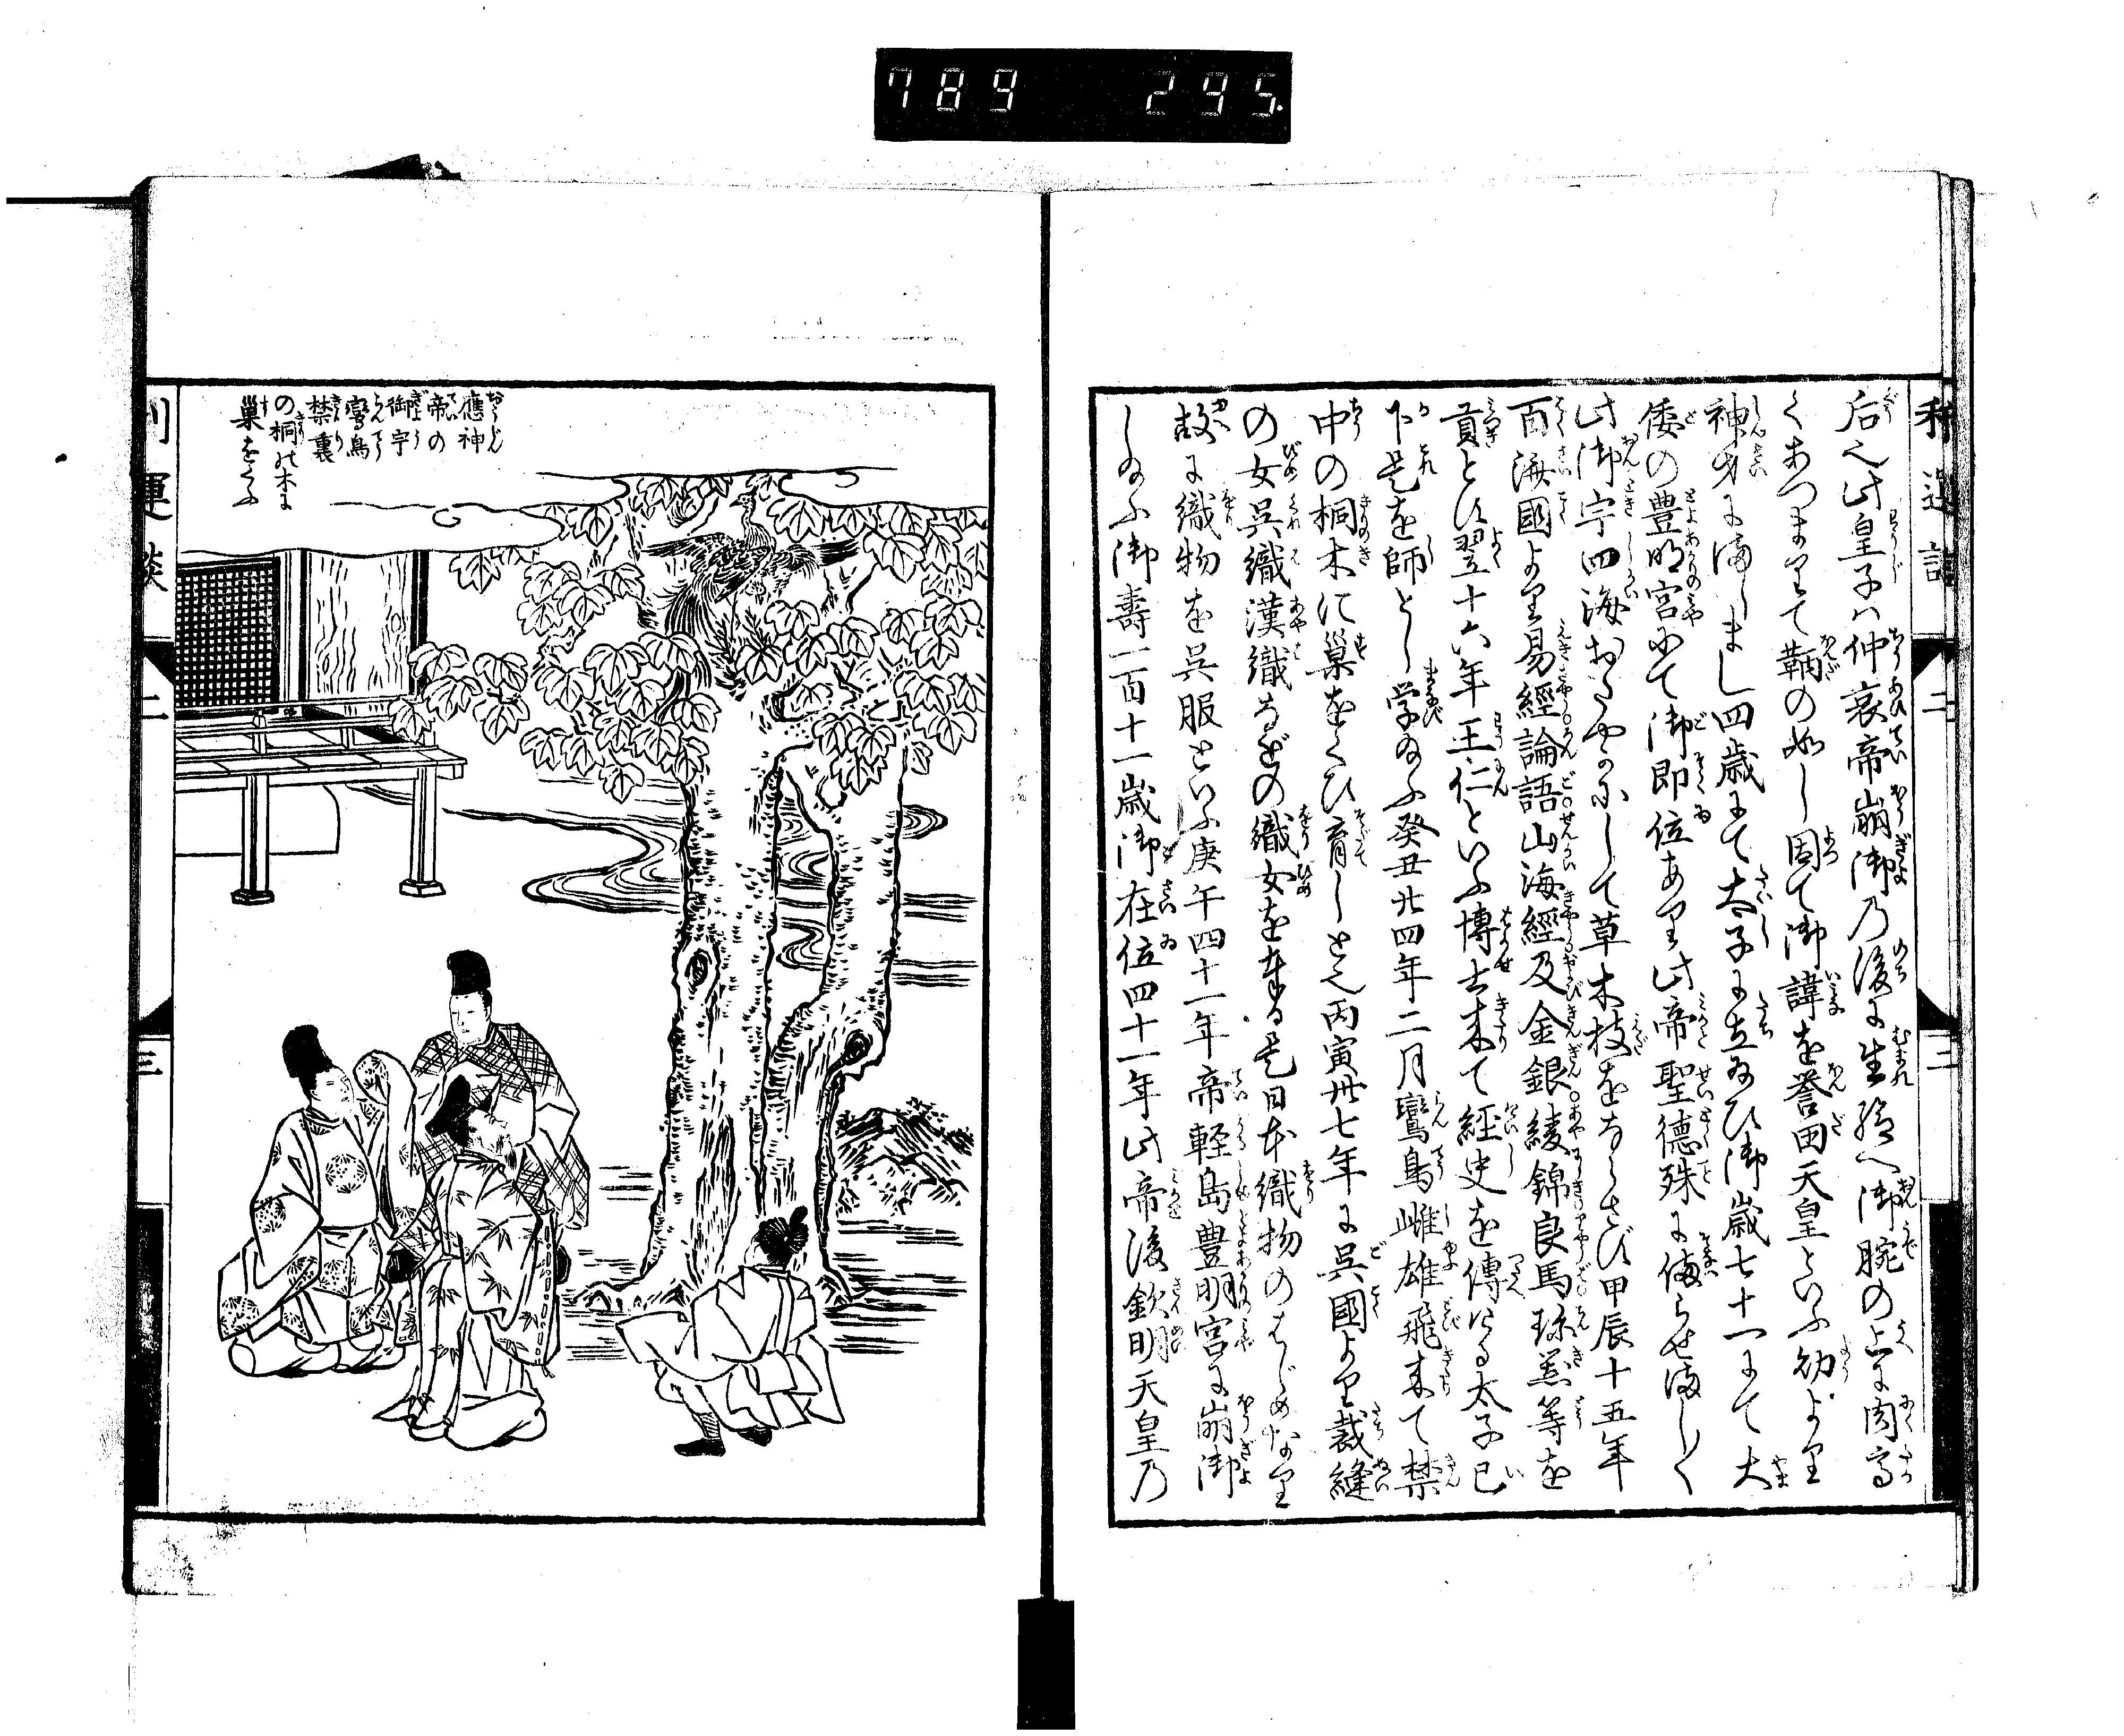 789 295
后也此皇子ハ仲哀帝崩御乃後に生給へ御腕の上に肉高
くあつまりて鞆の如し因て御諱を誉田天皇といふ幼より
神才にましまし四歳にて太子に立給ひ御歳七十一にて大
倭の豊明宮にて御即位あり此帝聖徳殊に備らせましく
此御宇四海おだやかにして草木枝をならさず甲辰十五年
百済國より易經論語山海經及金銀綾錦良馬珍器等を
貢とす翌十六年王仁といふ博士来て経史を傳ける太子已
下是を師とし学給ふ癸丑廿四年二月鸞鳥雌雄飛来て禁
中の桐木に巣をくひ育しと也丙寅卅七年に呉國より裁縫
の女呉織漢織などの織女を奉る是日本織物のはじめなり
故に織物を呉服といふ庚午四十一年帝軽島豊明宮に崩御
し給ふ御壽一百十一歳御在位四十一年此帝後欽明天皇乃
應神
帝の
御宇
鸞鳥
禁裏
の桐の木に
巣をくふ
二
三